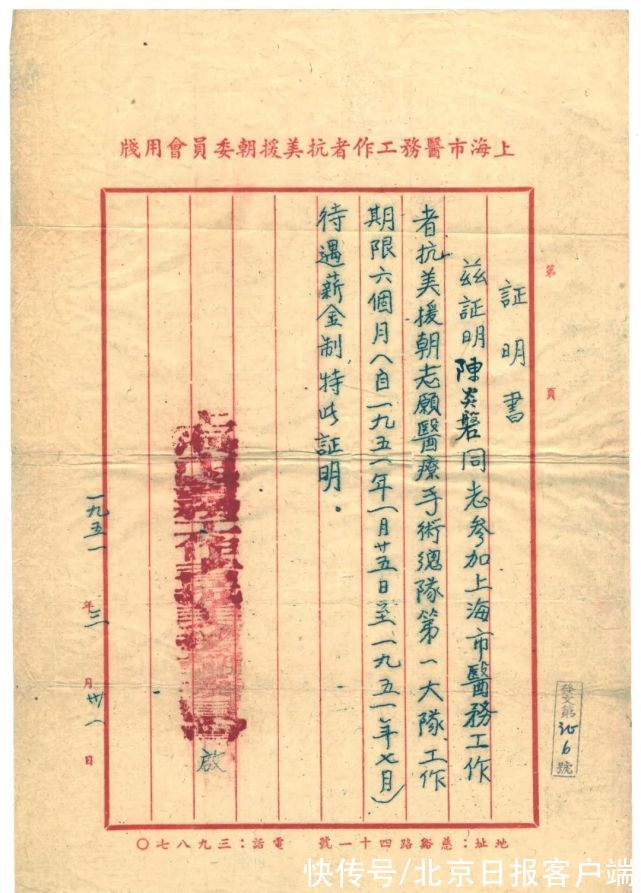 上海市醫務工作者抗美援朝委員會用牋
第 頁
証明書
兹証明陳炎磐同志参加上海市醫務工作
者抗美援朝志願醫療手術總隊第一大隊工作
期限六個月(自一九五一年一月廿五日至一九五一年七月)
待遇薪金制,特此証明.
啟
一九五一年三月卅一日
發文第 6號
地址:慈谿路四十一號 電話:三九八七〇
快传号/北京日报客户端